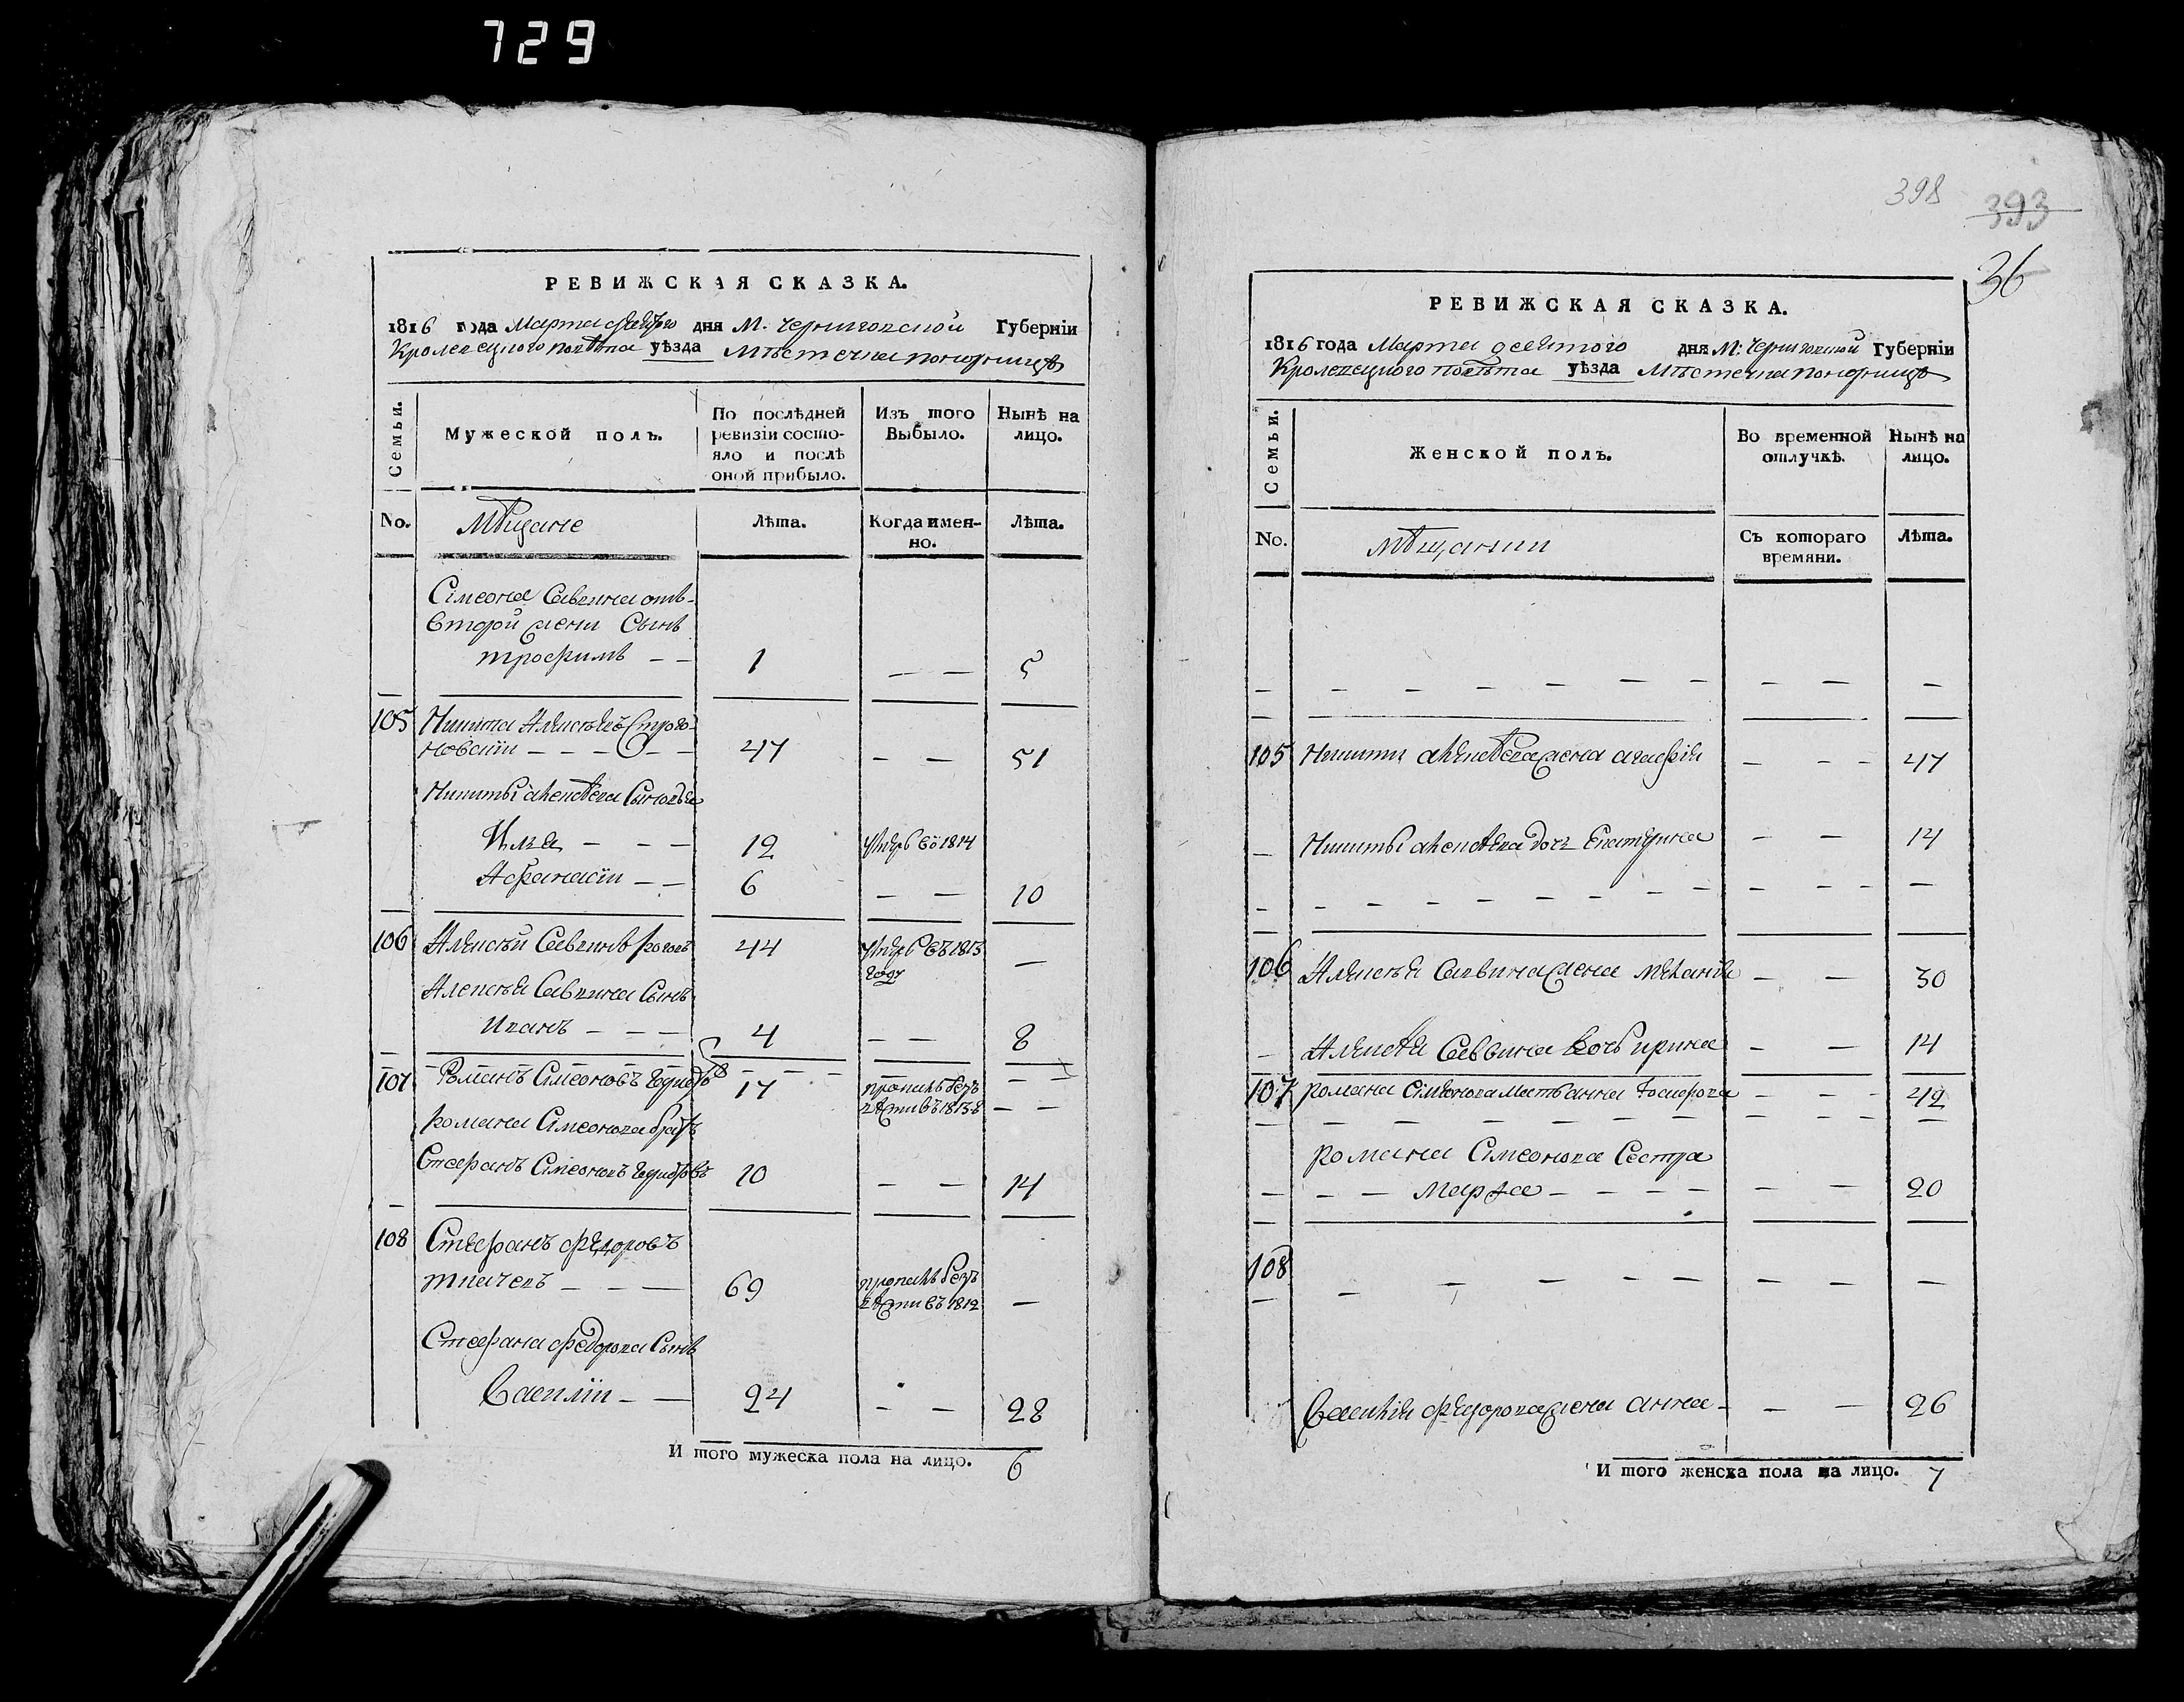 729
РЕВИЖСКАЯ СКАЗКА.
1816 года Марта дня М. Черниговской Губерніи
Кролевецкого повѣта уѣзда Мѣстечка Понорницѣ
Семьи.
Мужеской полъ.
По послѣдней ревизіи состо-
яло и послѣ оной прибыло.
Изъ того Выбыло.
Нынѣ на лицо.
No. Мѣщане Лѣта. Когда имен-
но. Лѣта.
Симеона Саввина отъ
второй жени Сынъ
трофимъ — — 1 — — 5
105 Никита Алексѣевъ
новскїи — — — — — 47 — — 51
Никиты алексѣева Сыновья
Илья — — — 12 умеръ въ 1814
Афанасїи — — 6 — — 10
106 Алексѣй Саввинъ 44 умеръ въ 1813
году —
Алексѣя Саввина Сынъ
Иванъ — — — 4 — — 8
107 Романъ Симеоновъ 17 пропалъ безъ
вѣсти въ 1813 — —
Романа Симеонова братъ
Стефанъ Симеоновъ 10 — — 14
108 Стефанъ Федоровъ
ткачевъ — — — 69 пропалъ безъ
вѣсти въ 1812 —
Стефана Федорова Сынъ
Василїи — — 24 — — 28
И того мужеска пола на лицо. 6
398 393
36
РЕВИЖСКАЯ СКАЗКА.
1816 года Марта девятого дня М. Черниговской Губерніи
Кролевецкого повѣта уѣзда Мѣстечка Понорницѣ
Семьи.
Женской полъ.
Во временной отлучкѣ.
Нынѣ на лицо.
No. Мѣщанки Съ котораго
времяни. Лѣта.
— — — — — — — — — —
105 Никити алексѣева жена агафія — — — 47
— Никиты алексѣева дочь Екатерина — — 14
— — — — — — — — — — — — —
106 Алексѣя Саввина жена Меланія — — 30
— Алексѣя Саввина дочь ирина — — 14
107 Романа Симеонова мать анна — — — 42
— — — — — — — — — — —
Романа Симеонова Сестра
— — — Марфа — — — — — — 20
108 — — — — — — — —
Василия Федорова жена анна — — — 26
И того женска пола на лицо. 7